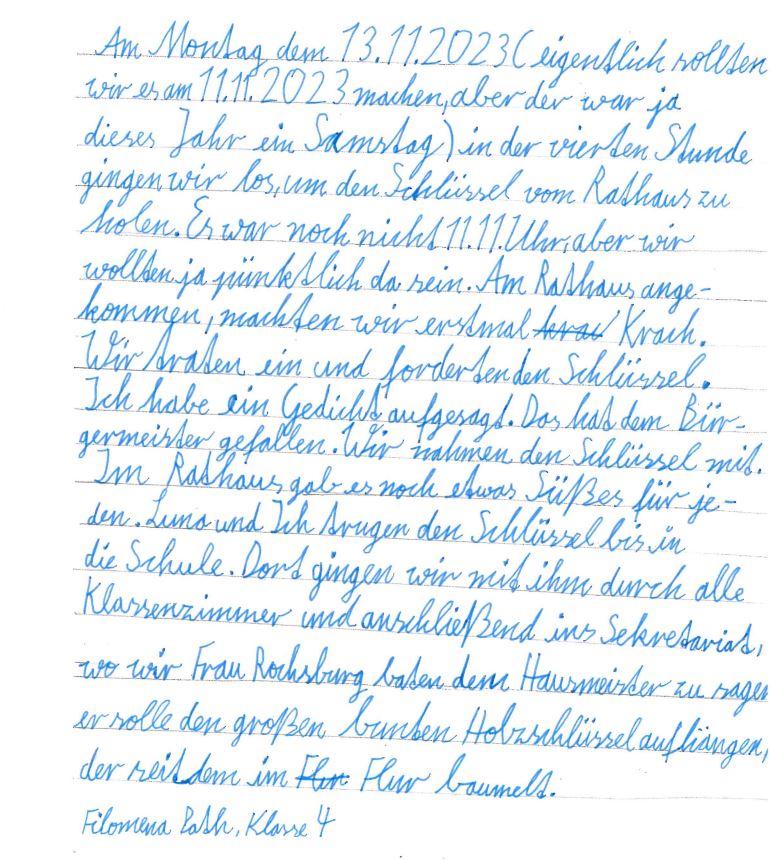 Am Montag dem 13.11.2023 (eigentlich sollten
wir es am 11.11.2023 machen, aber der war ja
dieses Jahr ein Samstag) in der vierten Stunde
gingen wir los, um den Schlüssel vom Rathaus zu
holen. Es war noch nicht 11.11. Uhr, aber wir
wollten ja pünktlich da sein. Am Rathaus ange-
kommen, machten wir erstmal Krach.
Wir traten ein und forderten den Schlüssel.
Ich habe ein Gedicht aufgesagt. Das hat dem Bür-
germeister gefallen. Wir nahmen den Schlüssel mit.
Im Rathaus gab es noch etwas Süßes für je-
den. Luna und Ich trugen den Schlüssel bis in
die Schule. Dort gingen wir mit ihm durch alle
Klassenzimmer und anschließend ins Sekretariat,
wo wir Frau Rochsburg baten dem Hausmeister zu sagen
er solle den großen bunten Holzschlüssel aufhängen,
der seit dem im Flur Flur baumelt.
Filomena Rath, Klasse 4